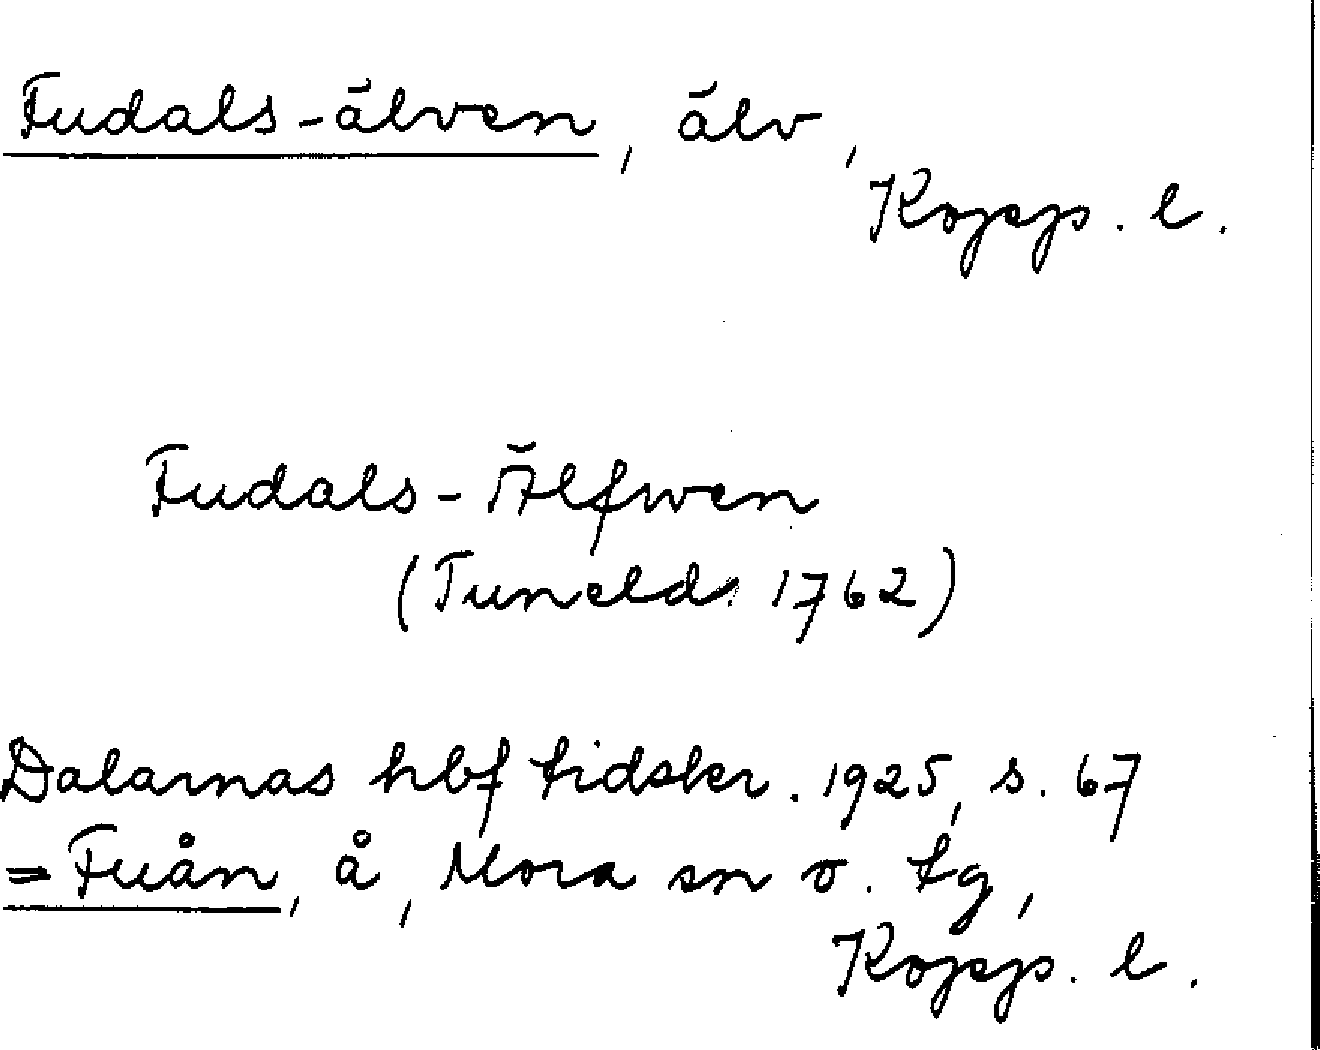 Fudals-älven, älv,
Kopp. l.
Fudals-Älfwen
(Tuneld. 1762)
Dalarnas hbf tidskr. 1925, s. 67
= Fuån, å, Mora sn o. tg,
Kopp. l.